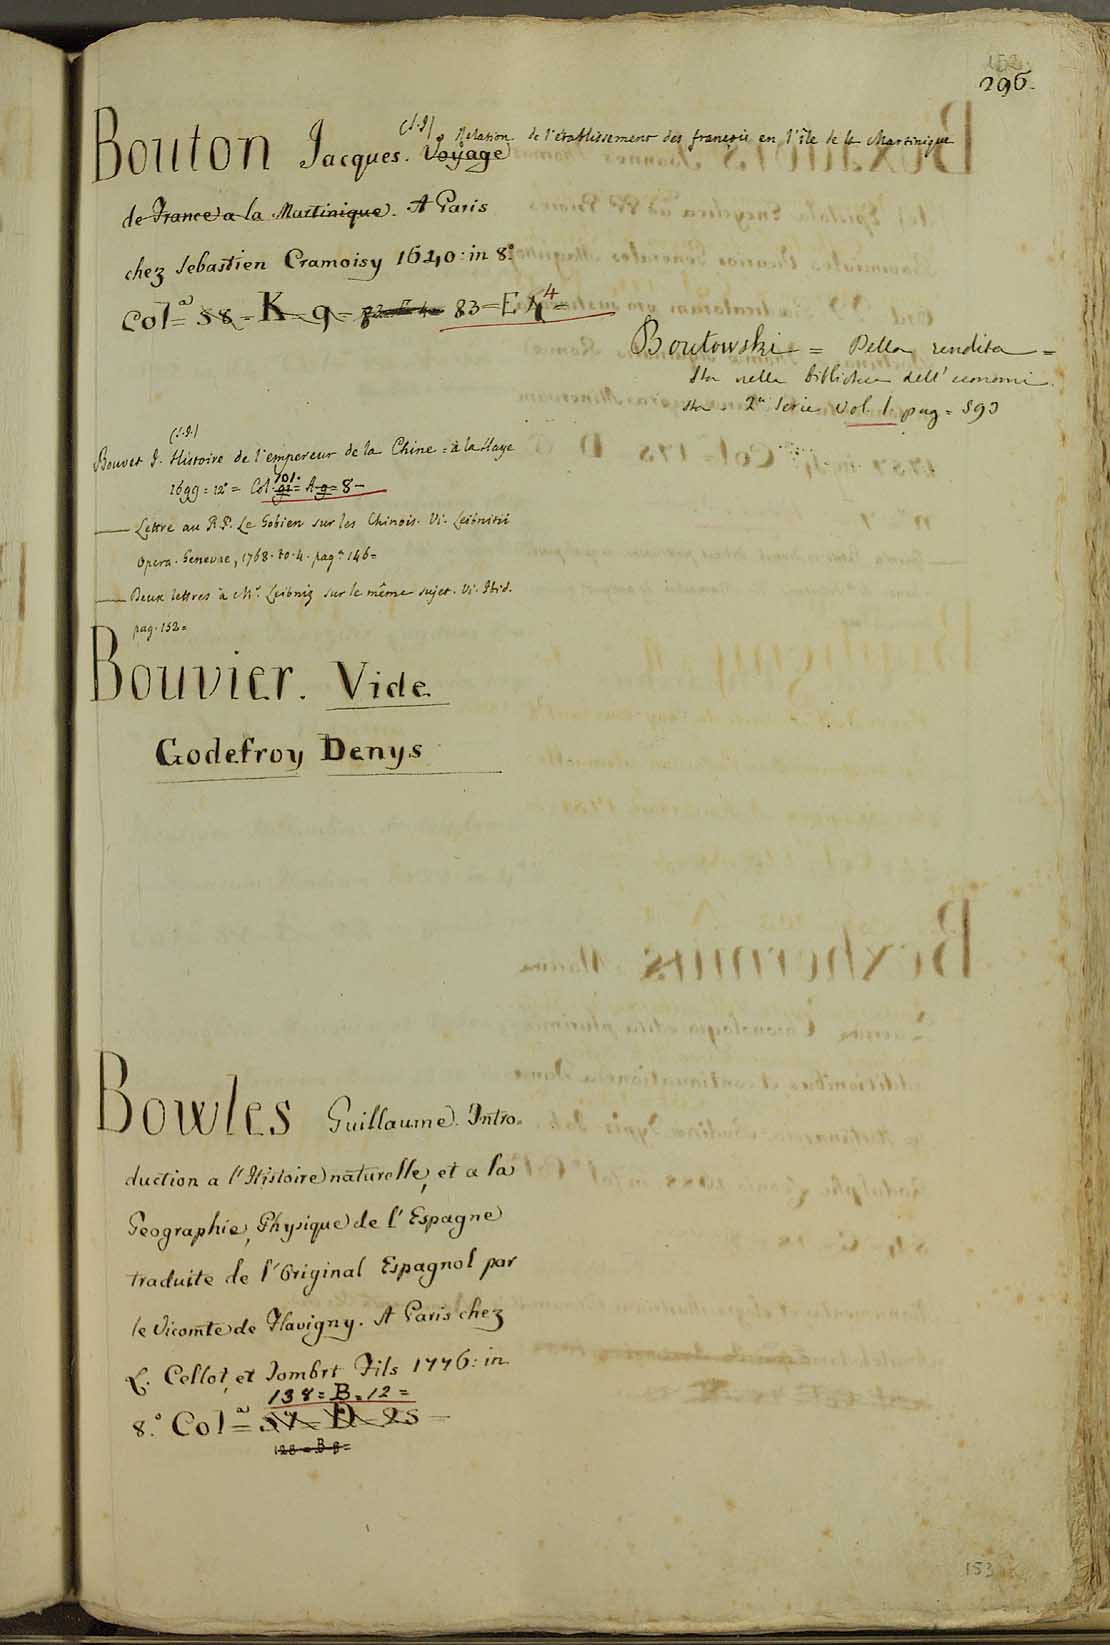 152.
296.
Bouton Jacques. (S.J.) Voyage Relation de l'établissement des françois en l'île de la Martinique
de France a la Martinique. A Paris
chez Sebastien Cramoisy 1640: in 8.°
Col.a = 58 - K - 9 = 83 = E 4 =
Boutowski = Della rendita =
Sta nella biblioteca dell' economi
sta. 2a Serie Vol. 1 pag = 593
(S.J.)
Bouvet J. Histoire de l'empereur de la Chine = à la Haye
1699 = 12° = Col. 101. 91 = A 9 = 8 -
— Lettre au R.P. Le Gobien sur les Chinois. Vi. Leibnitii
Opera. Genevae, 1768. to. 4. pag.a 146 =
— Deux lettres à Mr. Leibniz sur le même sujet. Vi. Ibid.
pag. 152 =
Bouvier. Vide
Godefroy Denys
Bowles Guillaume. Intro=
duction a l'Histoire naturelle, et a la
Geographie, Physique de l'Espagne
traduite de l'Original Espagnol par
le Vicomte de Flavigny. A Paris chez
L. Cellot, et Jombrt Fils 1776: in
138 = B = 12 =
8.° Col.a = 57 - D - 25 -
128 = B 8 =
153